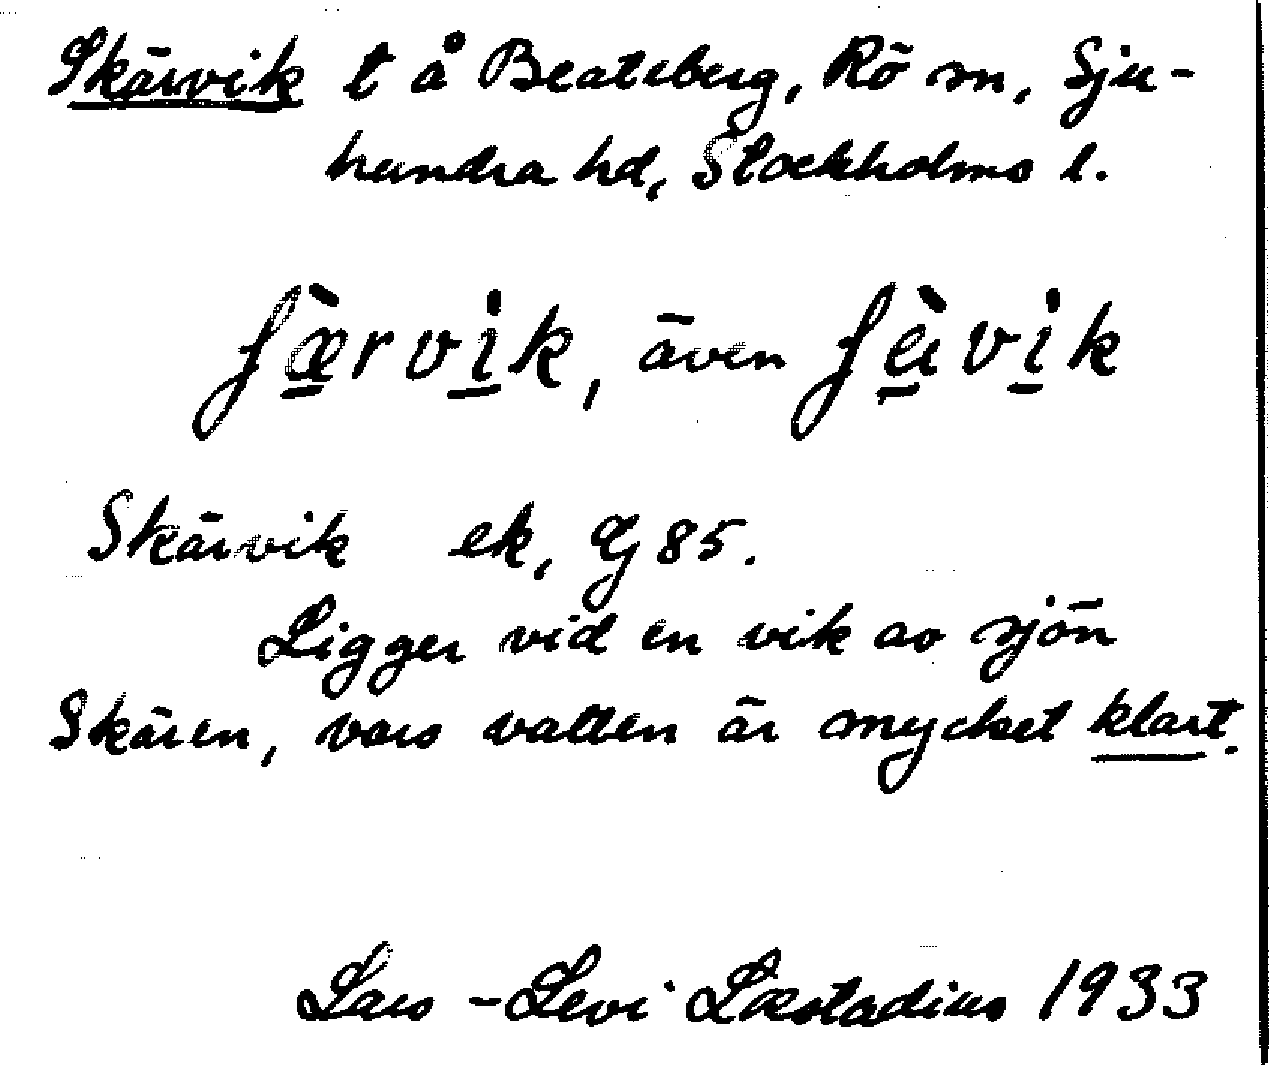 Skärvik t å Beateberg, Rö sn, Sju-
hundra hd, Stockholms l.
ʃæ̀rvik, även ʃä̀vik
Skärvik ek, G 85.
Ligger vid en vik av sjön
Skären, vars vatten är mycket klart.
Lars-Levi Læstadius 1933